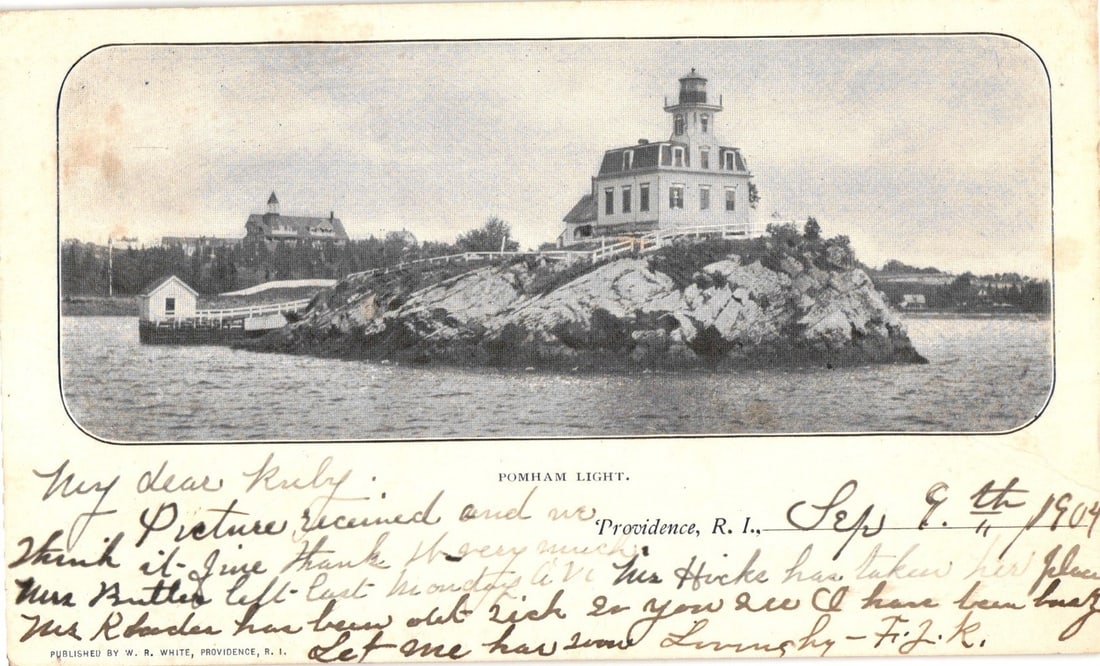 POMHAM LIGHT.
My dear Ruby.
Picture received and we
Providence, R. I., Sep 9.th 1904
think it fine thank very much.
Mrs Butler left last Monday Mr has taken her place
Mr has been out sick so you see I have been busy
Let me soon Lovingly - F. J. K.
PUBLISHED BY W. R. WHITE, PROVIDENCE, R. I.